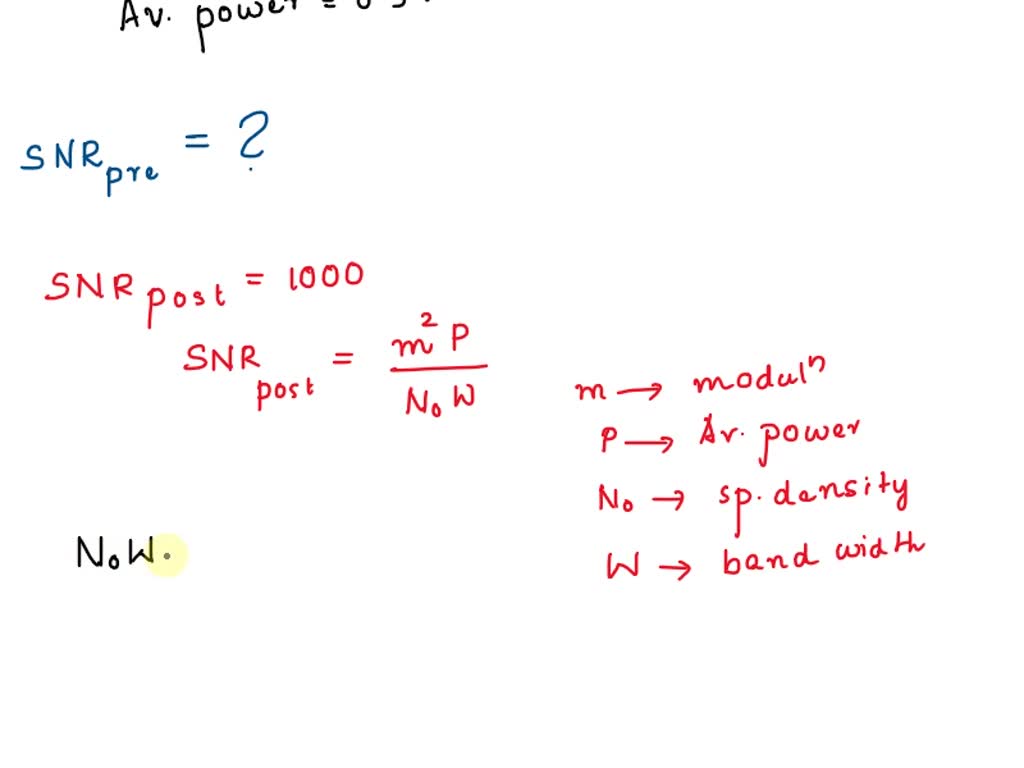 Av. power =
SNRpre = ?
SNRpost = 1000
SNRpost = m² P / N₀ W
m → modulⁿ
P → Av. power
N₀ → sp. density
W → band width
N₀W